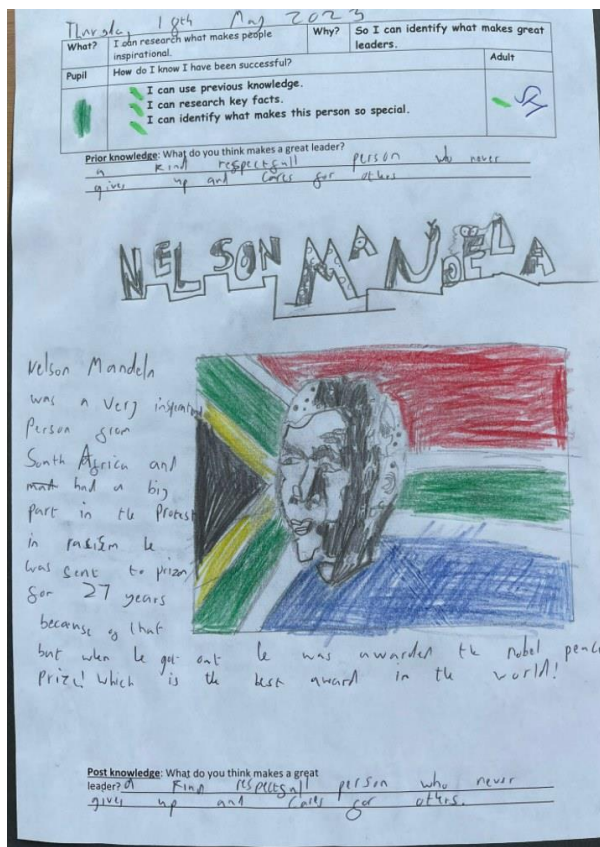 Thursday 18th May 2023
What? I can research what makes people inspirational. Why? So I can identify what makes great leaders.
Pupil How do I know I have been successful? Adult
I can use previous knowledge.
I can research key facts.
I can identify what makes this person so special.
Prior knowledge: What do you think makes a great leader?
a kind respectfull person who never
gives up and cares for others
NELSON MANDELA
Nelson Mandela
was a very
Person from
South Africa and
had a big
part in the Protest
in rasism he
was sent to prizon
for 27 years
because of that
but when he got out he was awarded the nobel peace
Prize! Which is the best award in the world!
Post knowledge: What do you think makes a great
leader? a kind respectfull person who never
gives up and cares for others.